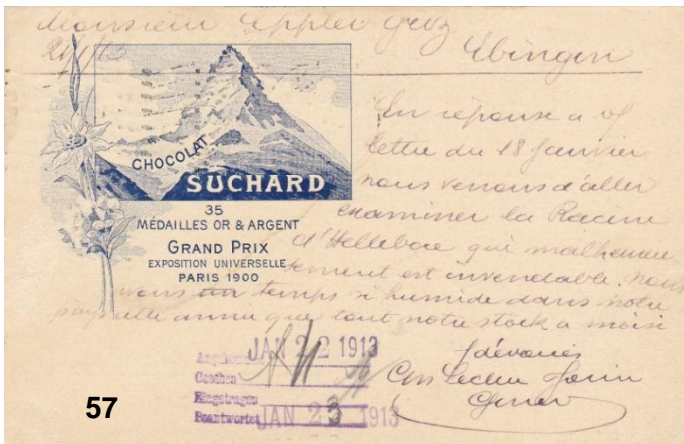 Monsieur Eppler Groz
21/1/13 Ebingen
CHOCOLAT
SUCHARD
35
MÉDAILLES OR & ARGENT
GRAND PRIX
EXPOSITION UNIVERSELLE
PARIS 1900
En réponse a v/
lettre du 18 Janvier
nous venons d'aller
examiner la Racine
d'Hellebore qui malheureu
sement est invendable. nous
avons un temps si humide dans notre
cette année que tout notre stock a moisi
dévoués
JAN 22 1913
Gesehen
Eingetragen
Beantwortet JAN 23 1913
57